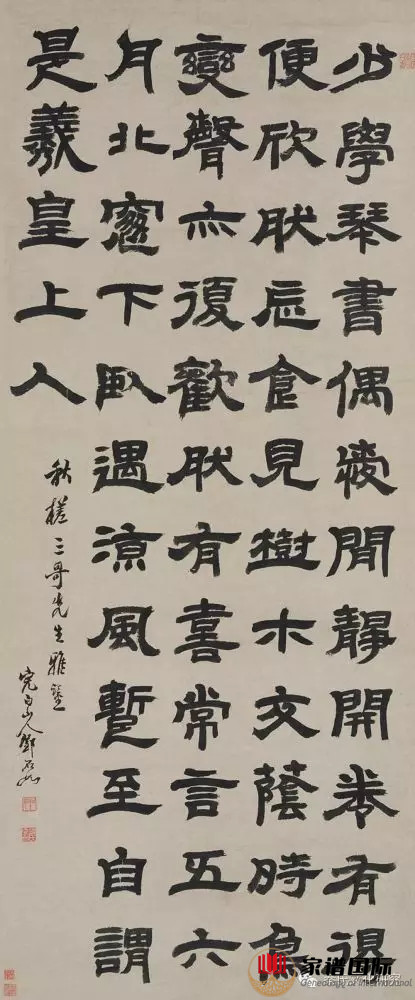 少學琴書偶愛閒靜開卷有得
便欣肰忘食見樹木交蔭時鳥
變聲亦復歡肰有喜常言五六
月北窻下臥遇涼風暫至自謂
是羲皇上人
秋槎三哥先生雅鑒
完白山人鄧石如
家谱国际
Genealogy of International